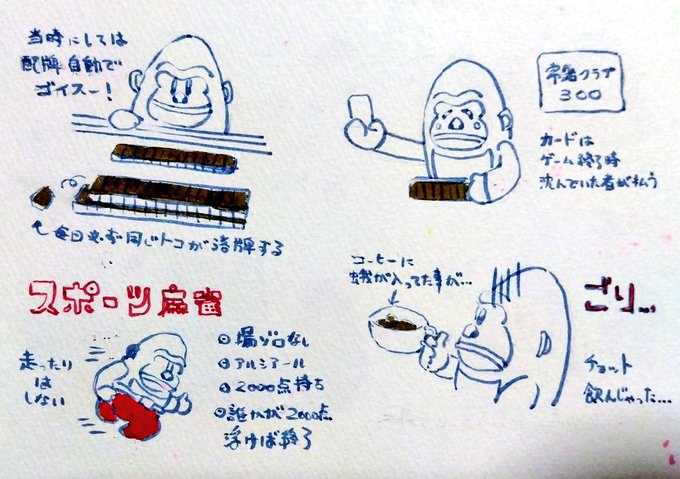 当時にしては
配牌自動で
ゴイスー！
毎日必ず同じトコが落牌する
常箸クラブ
300
カードは
ゲーム終了時
沈んでいた者が払う
スポーツ麻雀
走ったり
は
しない
場ゾロなし
アルシアール
2000点持ち
誰かが2000点
浮けば終了
コーヒーに
蛾が入ってた事が…
ごり…
チョット
飲んじゃった…